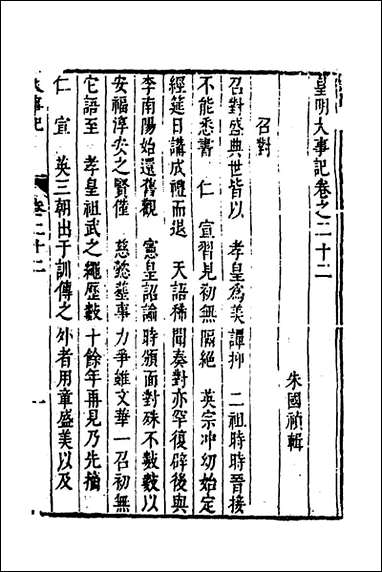 皇明大事記卷之二十二
朱國禎輯
召對
召對盛典世皆以 孝皇爲美譚抑 二祖時時晉接
不能悉書 仁 宣習見初無隔絶 英宗冲幼始定
經筵日講成禮而退 天語稀聞奏對亦罕復辟後與
李南陽始還舊觀 憲皇詔諭時頒面對殊不數數以
安福淳安之賢僅 慈懿塟事力争雖文華一召初無
它語至 孝皇祖武之繩歷數十餘年再見乃先摘
仁 宣 英三朝出于訓傳之外者用章盛美以及
大事記
卷二十二
一